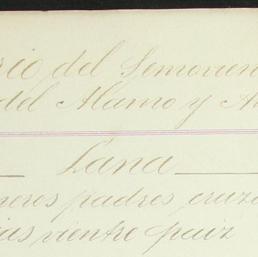 rio del Semovien
del Alamo y A
Lana
neros padres cruza
jas vientre paiz